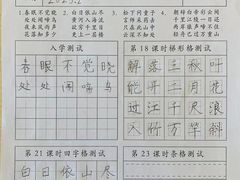 2023.2
1. 春眠不觉晓
处处闻啼鸟
夜来风雨声
花落知多少
2. 白日依山尽
黄河入海流
欲穷千里目
更上一层楼
3. 松下问童子
言师采药去
只在此山中
云深不知处
4. 朝辞白帝彩云间
千里江陵一日还
两岸猿声啼不住
轻舟已过万重山
入学测试
春眠不觉晓
处处闻啼鸟
第18课时梯形格测试
解落三秋叶
能开二月花
过江千尺浪
入竹万竿斜
第21课时田字格测试
白日依山尽
第23课时条格测试